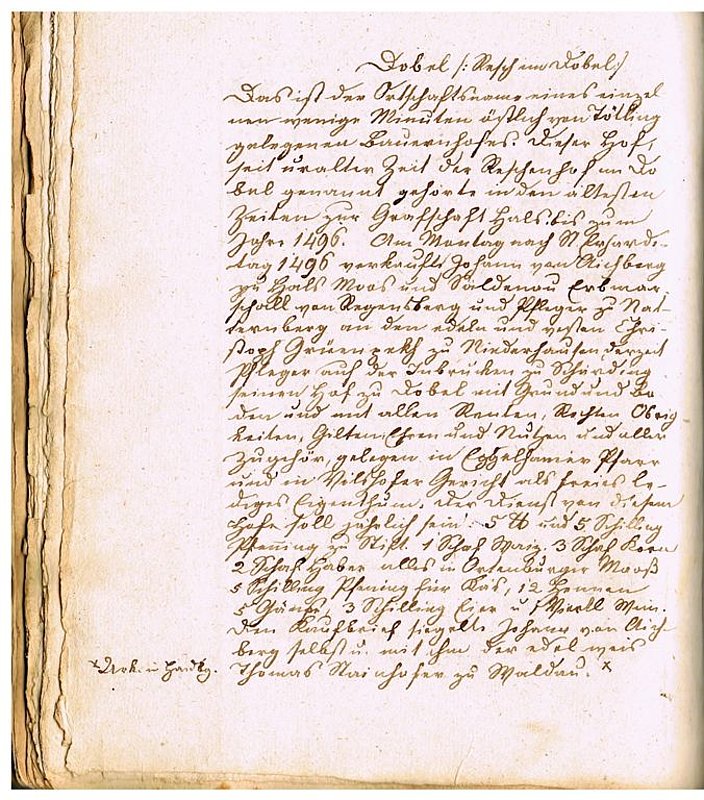 Dobel /: Resch im Dobel :/
Das ist der Ortschaftsname eines einzel
nen wenige Minuten östlich von Tötling
gelegenen Bauernhofes. Dieser Hof,
seit uralter Zeit der Reschenhof im Do
bel genannt gehörte in den ältesten
Zeiten zur Grafschaft Hals bis zum
Jahre 1496. Am Montag nach St Erhards-
tag 1496 verkaufte Johann von Aichberg
zu Hals Moos und Säldenau Erbmar-
schall von Regensberg und Pfleger zu Nat-
ternberg an den edeln und vesten Chri-
stoph Grüenpekh zu Niederhausen derzeit
Pfleger auf der Inbrucken zu Schärding
seinen Hof zu Dobel mit Grund und Bo
den und mit allen Renten, Rechten Obrig-
keiten, Gilten, Ehren und Nutzen und aller
Zugehör, gelegen in Eggelhamer Pfarr
und in Vilshofer Gericht als freies le-
diges Eigenthum. Der Dienst von diesem
Hofe soll jährlich sein 5 ₰ und 5 Schilling
Pfenning zu Stift. 1 Schaf Waiz. 3 Schaf Korn
2 Schaf Haber alles in Ortenburger Mooß
5 Schilling Pfening für Käs, 12 Hennen
5 Gänse, 3 Schilling Eier u. 1 Viertl Wein.
Den Kaufbrief siegelte Johann von Aich-
berg selbst u. mit ihm der edel weis
Thomas Stainhofer zu Waldau. x
x Urk. in